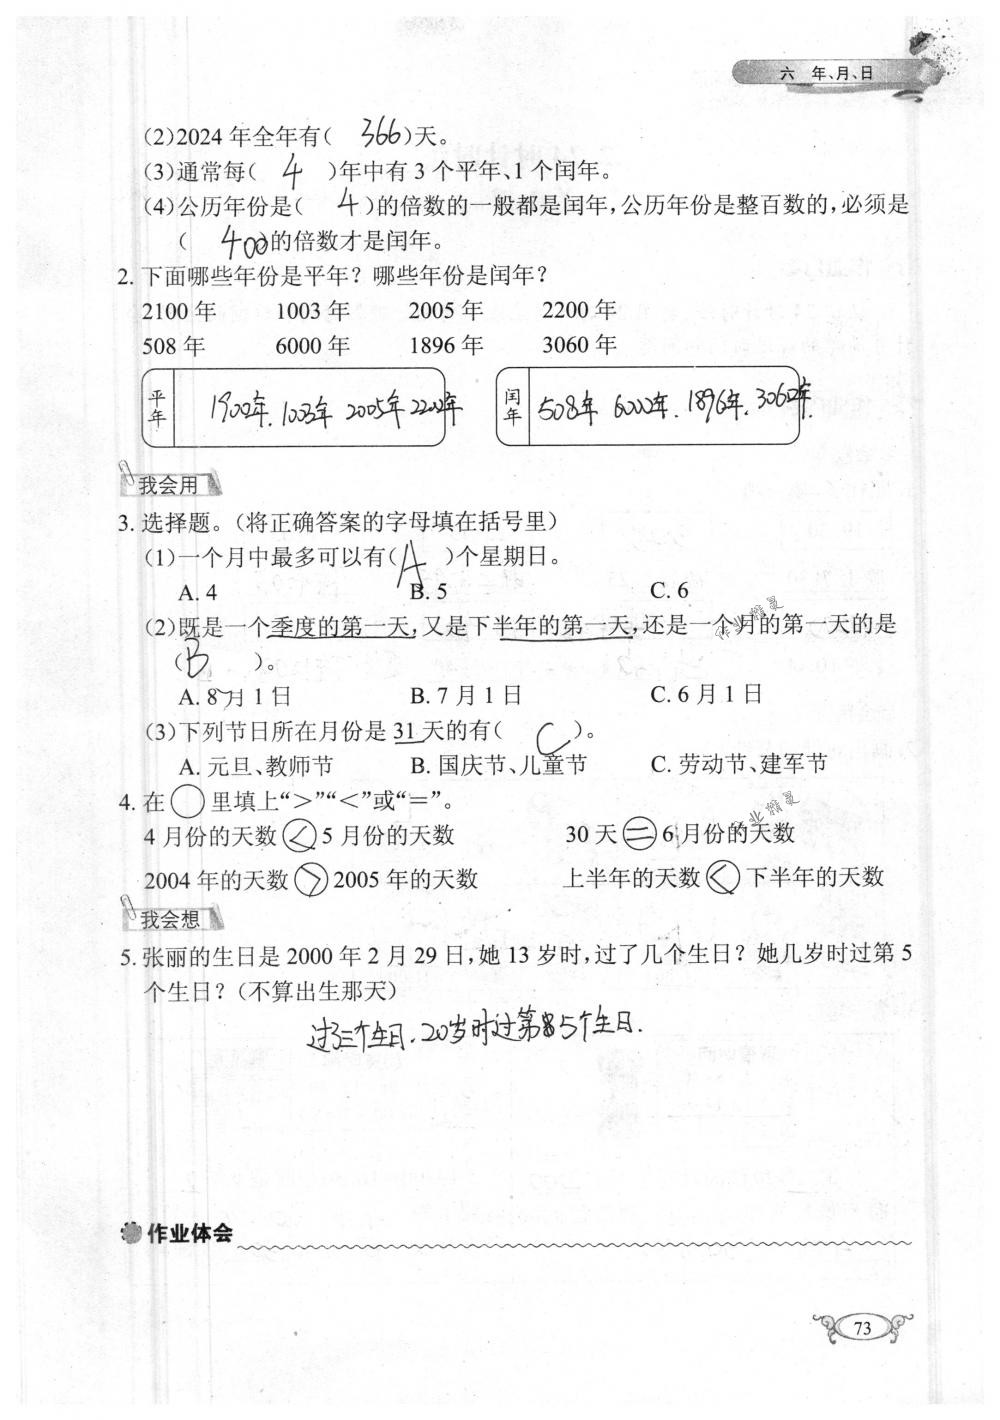 六 年、月、日
(2)2024年全年有( 366 )天。
(3)通常每( 4 )年中有3个平年、1个闰年。
(4)公历年份是( 4 )的倍数的一般都是闰年,公历年份是整百数的,必须是
( 400 )的倍数才是闰年。
2. 下面哪些年份是平年?哪些年份是闰年?
2100年 1003年 2005年 2200年
508年 6000年 1896年 3060年
平年 1900年. 1003年 2005年 2200年 闰年 508年 6000年. 1896年. 3060年.
我会用
3. 选择题。(将正确答案的字母填在括号里)
(1)一个月中最多可以有( A )个星期日。
A. 4 B. 5 C. 6
(2)既是一个季度的第一天,又是下半年的第一天,还是一个月的第一天的是
( B )。
A. 8月1日 B. 7月1日 C. 6月1日
(3)下列节日所在月份是31天的有( C )。
A. 元旦、教师节 B. 国庆节、儿童节 C. 劳动节、建军节
4. 在○里填上“>”“<”或“=”。
4月份的天数<5月份的天数 30天=6月份的天数
2004年的天数>2005年的天数 上半年的天数<下半年的天数
我会想
5. 张丽的生日是2000年2月29日,她13岁时,过了几个生日?她几岁时过第5
个生日?(不算出生那天)
过了三个生日. 20岁时过第5个生日.
作业体会
73
作业精灵
作业精灵